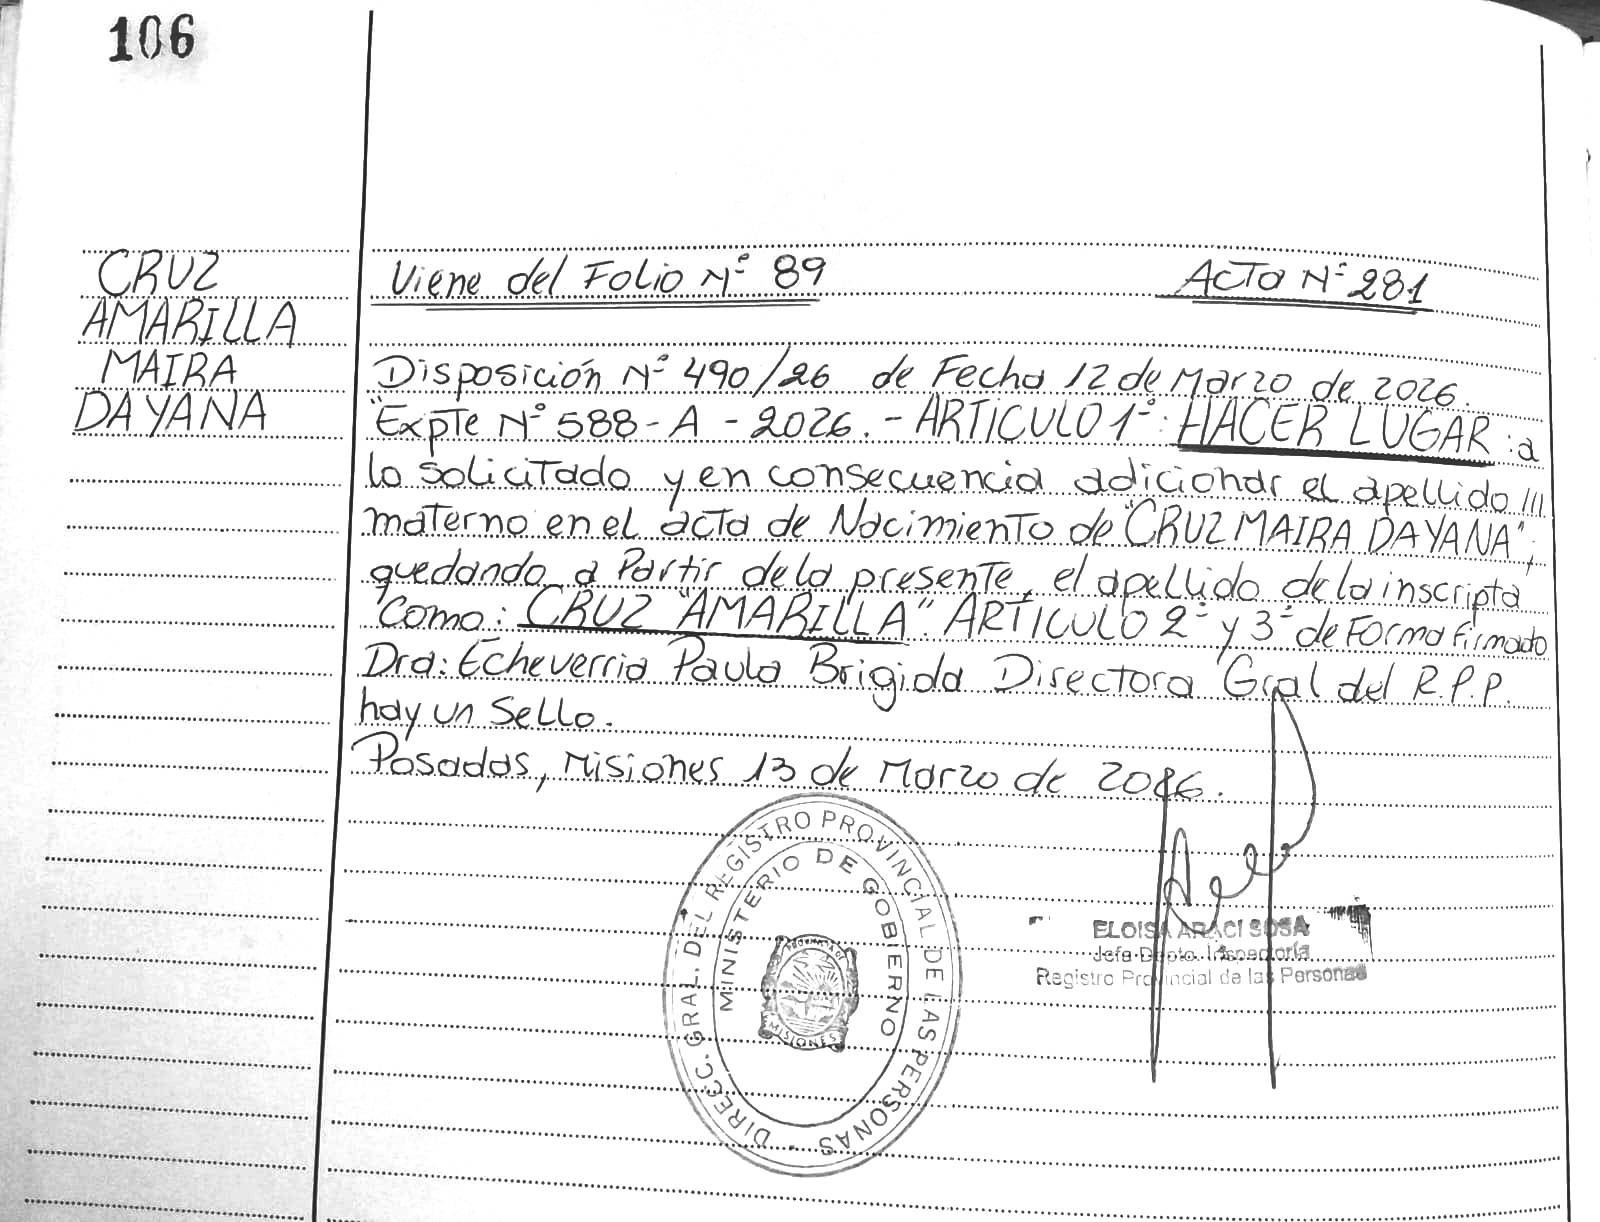 106
CRUZ
AMARILLA
MAIRA
DAYANA
Viene del Folio Nº 89
Acta Nº 281
Disposición Nº 490/26 de Fecha 12 de Marzo de 2026.
"Expte Nº 588-A-2026.- ARTICULO 1º: HACER LUGAR: a
lo solicitado y en consecuencia adicionar el apellido ///
materno en el acta de Nacimiento de "CRUZ MAIRA DAYANA",
quedando a Partir de la presente, el apellido de la inscripta
Como: CRUZ "AMARILLA". ARTICULO 2º y 3º de Forma Firmado
Dra: Echeverria Paula Brigida Directora Gral del R.P.P.
hay un Sello.
Posadas, Misiones 13 de Marzo de 2026.
DIRECC. GRAL. DEL REGISTRO PROVINCIAL DE LAS PERSONAS
MINISTERIO DE GOBIERNO
PROVINCIA DE
MISIONES
ELOISA ARACI SOSA
Jefa Depto. Inspectoría
Registro Provincial de las Personas